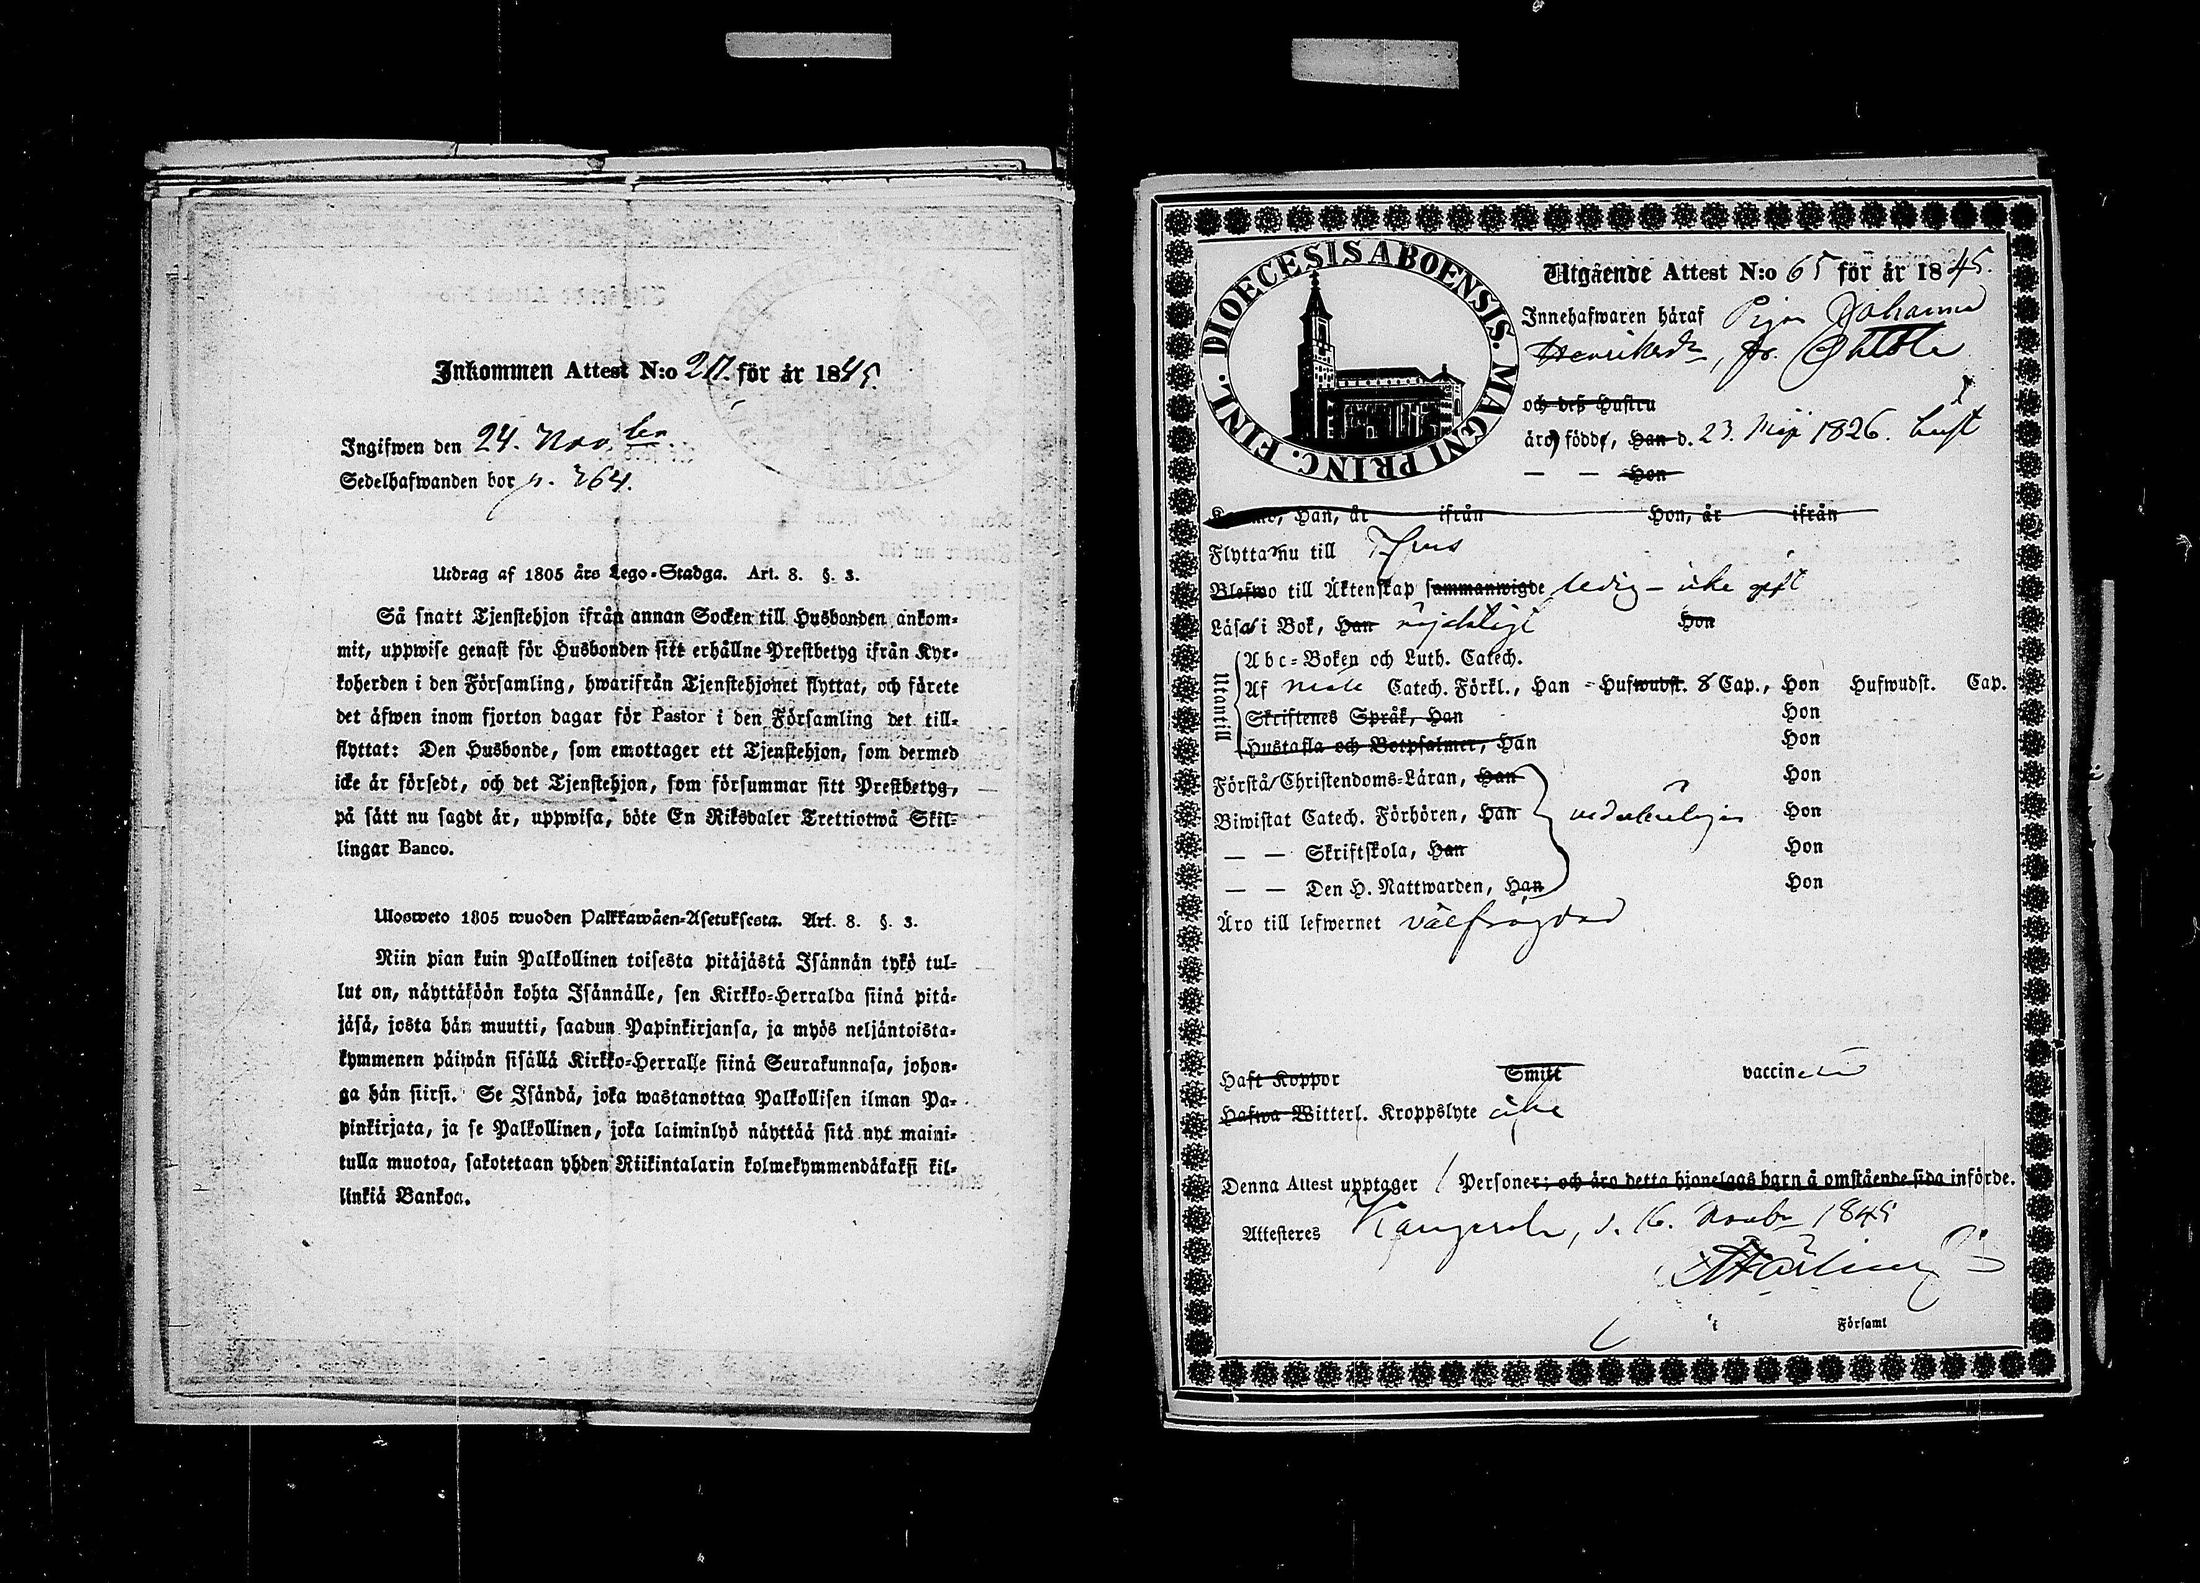 Inkommen Attest N:o 211. för år 1845.
Ingifwen den 24. Nov.ber
Sedelhafwanden bor p. 364.
Utdrag af 1805 års Lego-Stadga. Art. 8. §. 3.
Så snart Tjenstehjon ifrån annan Socken till Husbonden ankom-
mit, uppwise genast för Husbonden sitt erhållne Prestbetyg ifrån Kyr-
koherden i den Församling, hwarifrån Tjenstehjonet flyttat, och förete
det äfwen inom fjorton dagar för Pastor i den Församling det till-
flyttat: Den Husbonde, som emottager ett Tjenstehjon, som dermed
icke är försedt, och det Tjenstehjon, som försummar sitt Prestbetyg,
på sätt nu sagdt är, uppwisa, böte En Riksdaler Trettiotwå Skil-
lingar Banco.
Ulosweto 1805 wuoden Palkkawäen-Asetuksesta. Art. 8. §. 3.
Niin pian kuin Palkollinen toisesta pitäjästä Isännän tykö tul-
lut on, näyttäköön kohta Isännälle, sen Kirkko-Herralda siinä pitä-
jäsä, josta hän muutti, saadun Papinkirjansa, ja myös neljäntoista-
kymmenen päiwän sisällä Kirkko-Herralle siinä Seurakunnasa, johon-
ga hän siirsi. Se Isändä, joka wastanottaa Palkollisen ilman Pa-
pinkirjata, ja se Palkollinen, joka laiminlyö näyttää sitä nyt maini-
tulla muotoa, sakotetaan yhden Riikintalarin kolmekymmendäkaksi kil-
linkiä Bankoa.
DIOECESIS ABOENSIS. MAGNI PRINC. FINL.
Utgående Attest N:o 65 för år 1845.
Innehafwaren häraf Pigan Johanna
Henriksdr, fr.
och dess Hustru
äro född, Han d. 23. Maji 1826.
— — Hon
Komne, Han, år ifrån Hon, år ifrån
Flytta nu till
Blefwo till Äktenskap sammanwigde ledig – icke gift
Läsa i Bok, Han nöjaktigt Hon
Utantill
Abc-Boken och Luth. Catech.
Af Catech. Förkl., Han Hufwudst. 8 Cap., Hon Hufwudst. Cap.
Skriftenes Språk, Han Hon
Hustafla och Botpsalmer, Han Hon
Förstå Christendoms-Läran, Han Hon
Biwistat Catech. Förhören, Han vederbörligen Hon
— — Skriftskola, Han Hon
— — Den H. Nattwarden, Han Hon
Äro till lefwernet välfrägdad
Haft Koppor Smitt vaccinerad
Hafwa Witterl. Kroppslyte icke
Denna Attest upptager 1 Personer; och äro detta hjonelags barn å omstående sida införde.
Attesteras Kangasala, d. 16. Novbr 1845
i Församl